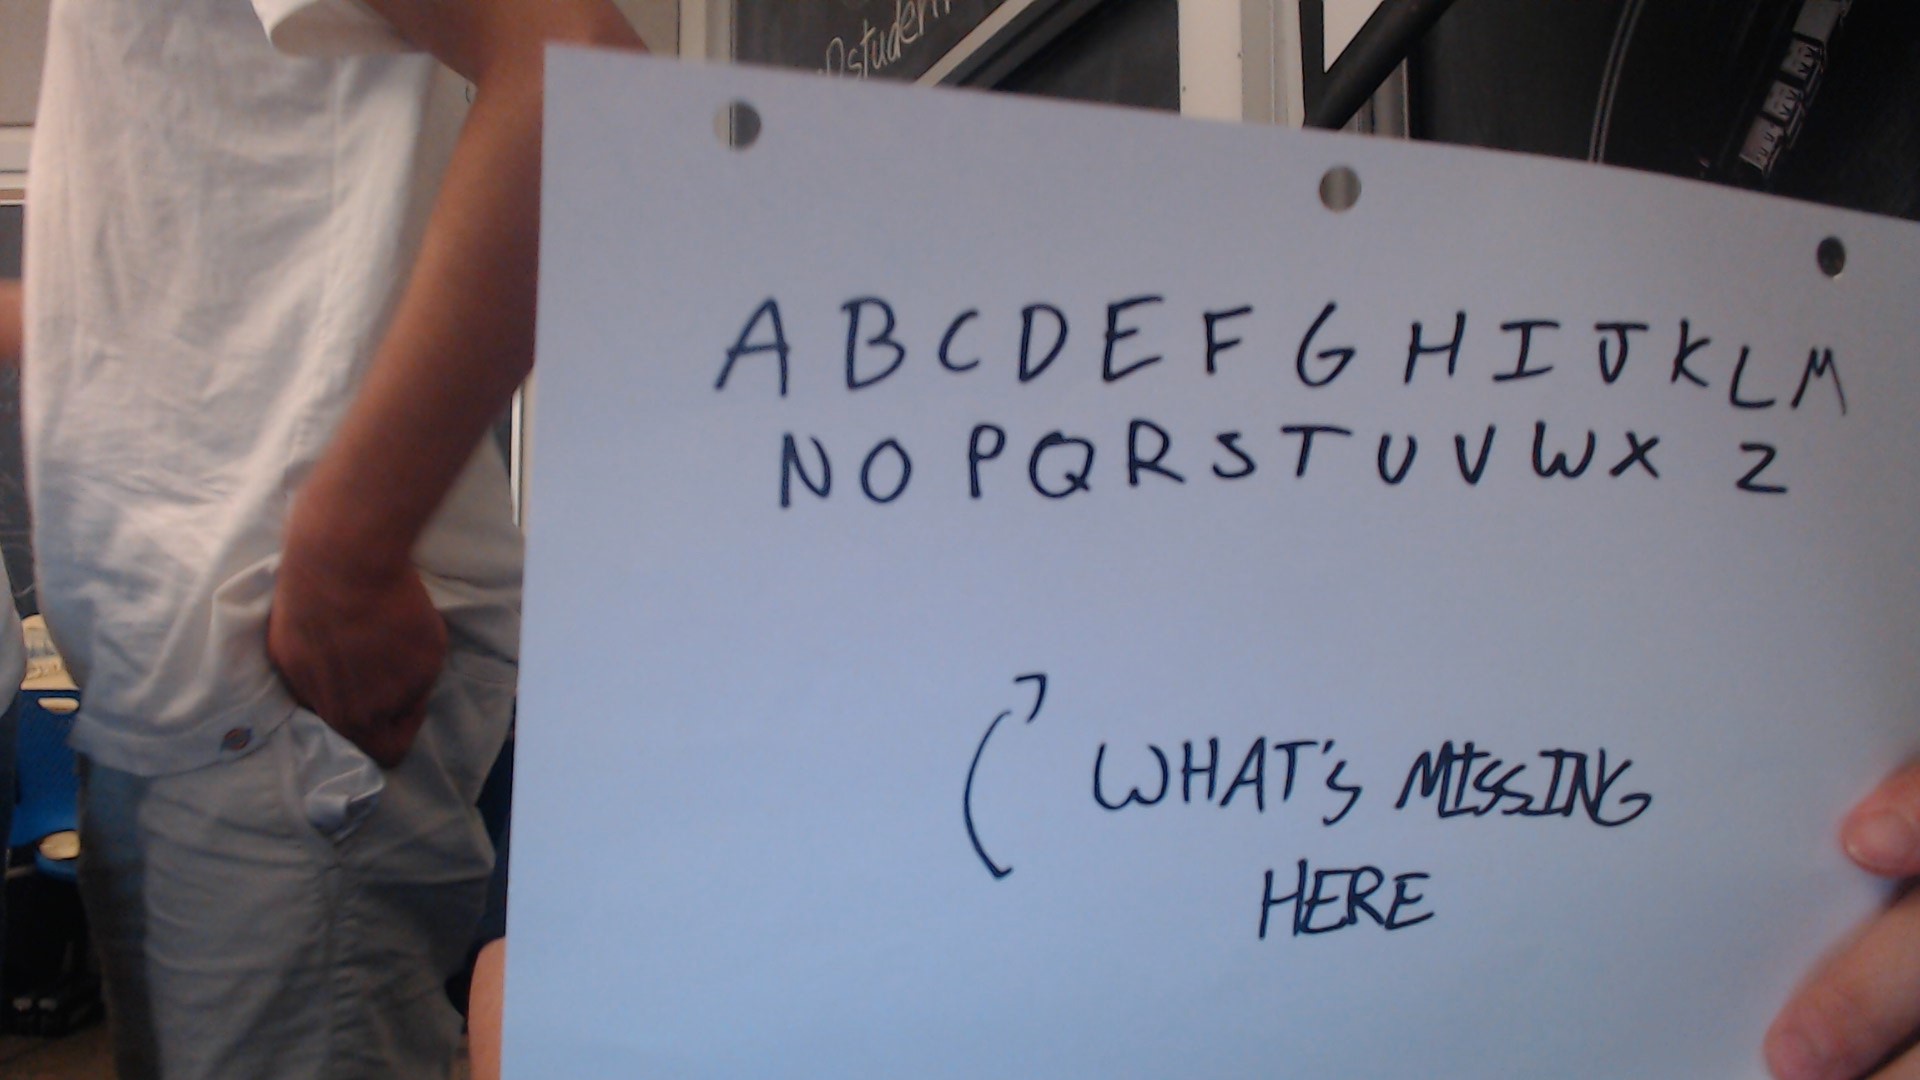 student
A B C D E F G H I J K L M
N O P Q R S T U V W X Z
WHAT's MISSING
HERE